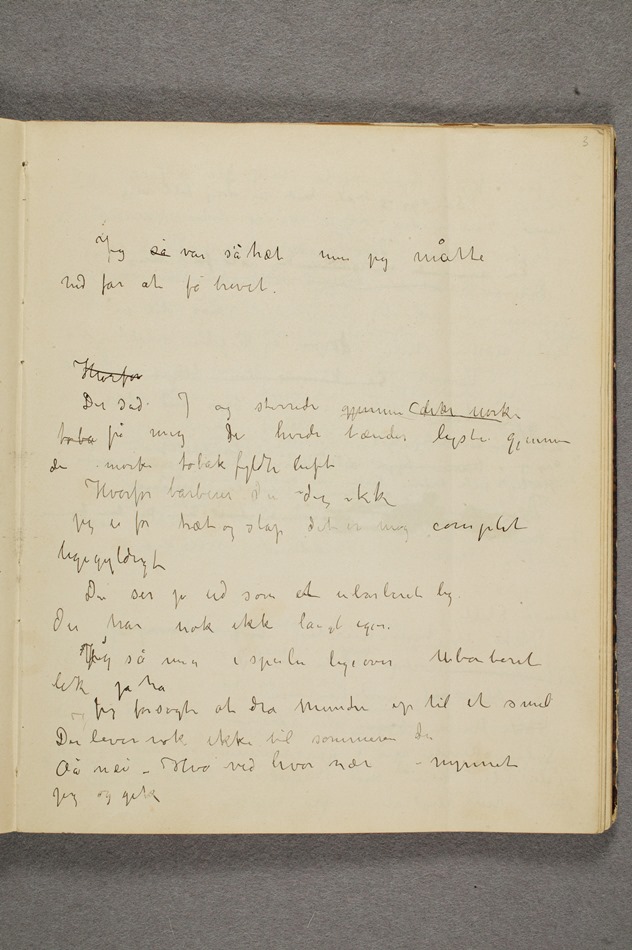 3
Jeg så var så træt men jeg måtte
ned for at få brevet.
Hvorfor
Der sad J og stirrede gjennem det mørke
toba på mig De hvide tænder lyste gjennem
den mørke tobakfyldte luft
Hvorfor barberer Du dig ikke
jeg er for træt og slap det er mig complet
ligegyldigt
Du ser jo ud som et ubarberet lig.
Du har nok ikke langt igjen.
Jeg så mig i speilet lige over Ubarberet
lik ja ha
og Jeg forsøgte at dra munden op til et smil
Du lever nok ikke til sommeren du
Åå nei – Hvo ved hvor nær – nynnet
jeg og gik